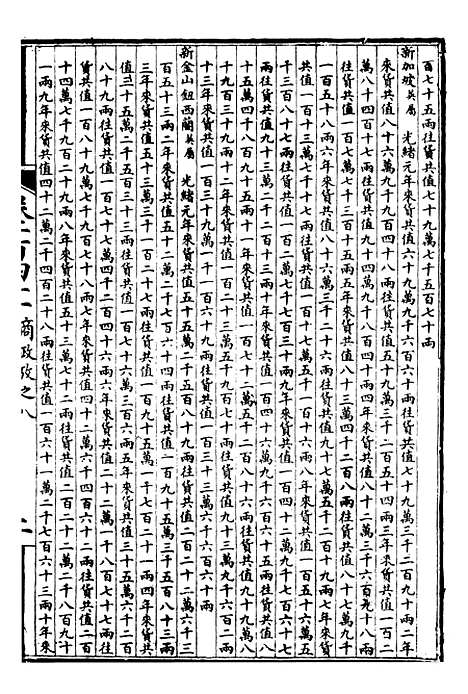 百七十五兩往貨共值七十九萬七千五百七十兩
新加坡英屬　光緒元年來貨共值六十九萬九千六百六十兩往貨共值九十萬三千二百九十兩二年
來貨共值八十六萬九千九百六十九兩往貨共值七十九萬二千二百五十四兩三年來貨共值一百二
萬八千四百十七兩往貨共值九十萬九千八百四十兩四年來貨共值八十二萬三千六百九十八兩
往貨共值八十一萬七千三百十五兩五年來貨共值八十三萬四千二百八兩往貨共值八十七萬九千
一百五十八兩六年來貨共值八十六萬三千二十八兩往貨共值一百二十萬七千九百二十兩七年來貨
共值一百十三萬七千七十兩往貨共值一百五萬一千一百六十兩八年來貨共值一百十萬九千
千三百八十七兩往貨共值一百三萬六千七百十兩九年來貨共值一百四十一萬九千七百六十七
兩往貨共值一百二十三萬三千六百九十兩十年來貨共值一百四十六萬九千六百六十兩往貨共值八
十五萬四千七百五十兩十一年來貨共值一百二十二萬二千八百十六兩往貨共值九十一萬九千八
十九百十三兩十二年來貨共值一百二十三萬五千九百八十兩往貨共值九十三萬九千四百六十二兩
十三年來貨共值一百三十九萬一千一百六十九兩往貨共值一百三十三萬六千六百十兩
新金山鈕西蘭英屬　光緒元年來貨共值五十五萬二千八十兩往貨共值九十二萬六千三
百五十三兩二年來貨共值五十二萬二千七百六十兩往貨共值一百九十五萬三千五百八十三兩
三年來貨共值五十三萬三千一百二十七兩往貨共值一百九十五萬一千七百二十一兩四年來貨共
值三十五萬二千五百三十三兩往貨共值一百七十六萬三百四十兩五年來貨共值三十五萬六千
八十九兩往貨共值一百七十七萬四千二百四十六兩六年來貨共值二十二萬一千八百七十七兩往
貨共值一百八十九萬七千九百七十八兩七年來貨共值四十二萬六千四百六十二兩往貨共值二百
十四萬七千九百二十九兩八年來貨共值五十三萬七十二兩往貨共值二百二十二萬二千八百九十
一兩九年來貨共值四十二萬二千四百二十一兩往貨共值一百六十一萬二千七百六十三兩十年來
卷三百四十二　商政攷之八
二